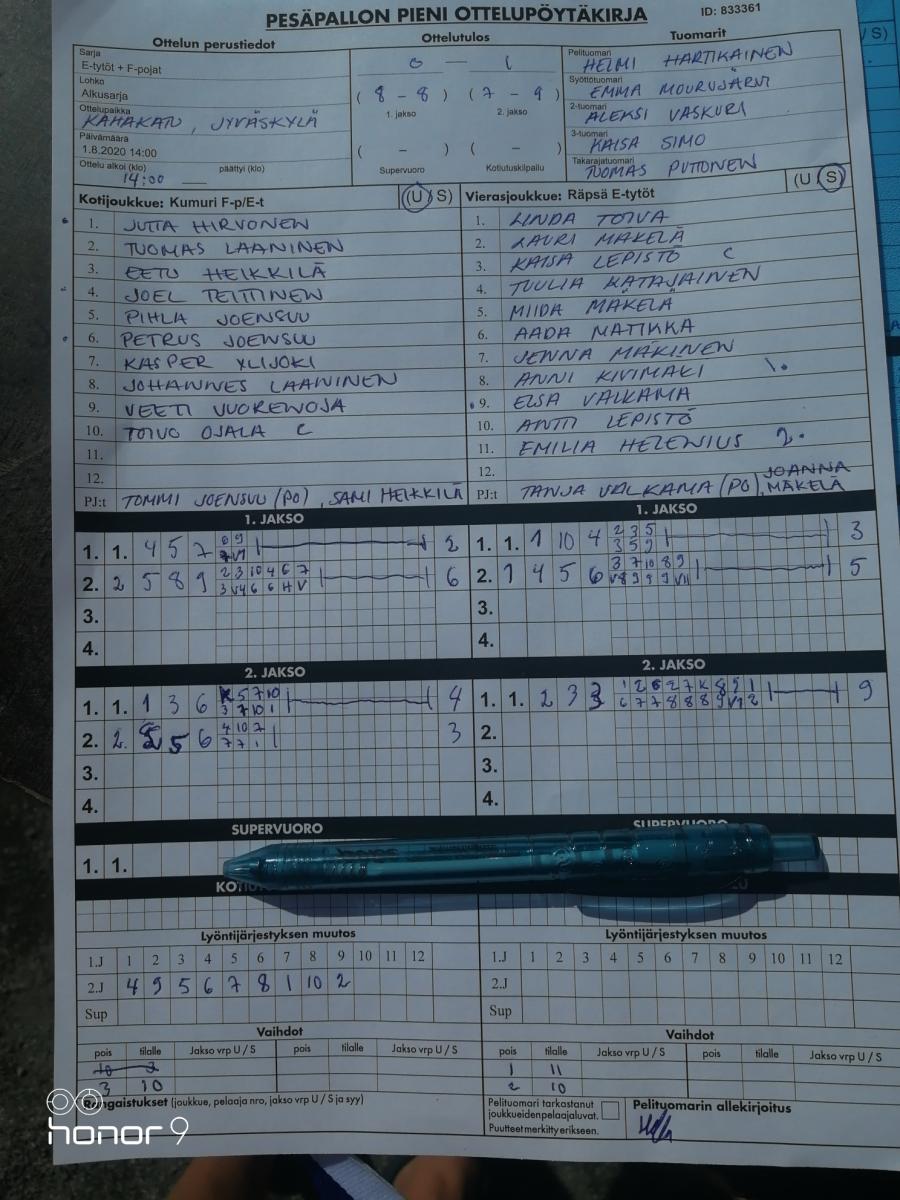 PESÄPALLON PIENI OTTELUPÖYTÄKIRJA
ID: 833361
Ottelun perustiedot
Sarja
E-tytöt + F-pojat
Lohko
Alkusarja
Ottelupaikka
KAHAKAN, JYVÄSKYLÄ
Päivämäärä
1.8.2020 14:00
Ottelu alkoi (klo) päättyi (klo)
14:00
Ottelutulos
0 — 1
( 8 - 8 ) ( 7 - 9 )
1. jakso 2. jakso
( - ) ( - )
Supervuoro Kotiutuskilpailu
Tuomarit
Pelituomari
HELMI HARTIKAINEN
Syöttötuomari
EMMA MOURUJÄRVI
2-tuomari
ALEKSI VASKURI
3-tuomari
KAISA SIMO
Takarajatuomari
TUOMAS PUTONEN
Kotijoukkue: Kumuri F-p/E-t (U S)
1. JUTTA HIRVONEN
2. TUOMAS LAANINEN
3. EETU HEIKKILÄ
4. JOEL TEITTINEN
5. PIHLA JOENSUU
6. PETRUS JOENSUU
7. KASPER YLIJOKI
8. JOHANNES LAANINEN
9. VEETI VUORENOJA
10. TOIVO OJALA C
11.
12.
PJ:t TOMMI JOENSUU (PO), SAMI HEIKKILÄ
Vierasjoukkue: Räpsä E-tytöt (U S)
1. LINDA TOIVA
2. LAURI MÄKELÄ
3. KAISA LEPISTÖ C
4. TUULIA KATAJAINEN
5. MIIDA MÄKELÄ
6. AADA MATIKKA
7. JENNA MÄKINEN
8. ANNI KIVIMÄKI 1.
9. ELSA VALKAMA
10. ANTTI LEPISTÖ
11. EMILIA HELENIUS 2.
12.
PJ:t TANJA VALKAMA (PO), JOANNA MÄKELÄ
1. JAKSO
1. 1. 4 5 7 2
2. 2 5 8 9 2 3 10 4 6 7 6
3.
4.
1. JAKSO
1. 1. 1 10 4 2 3 5 3
3 5 9
2. 1 4 5 6 3 7 10 8 9 5
3.
4.
2. JAKSO
1. 1. 1 3 6 K 5 7 10 4
3 7 10 1
2. 2. 5 6 4 10 7 3
7 7 1
3.
4.
2. JAKSO
1. 1. 2 3 3 1 2 6 2 7 K 8 9 1 9
2.
3.
4.
SUPERVUORO
1. 1.
SUPERVUORO
Lyöntijärjestyksen muutos
1.J 1 2 3 4 5 6 7 8 9 10 11 12
2.J 4 9 5 6 7 8 1 10 2
Sup
Lyöntijärjestyksen muutos
1.J 1 2 3 4 5 6 7 8 9 10 11 12
2.J
Sup
Vaihdot
pois tilalle Jakso vrp U / S pois tilalle Jakso vrp U / S
3 10
Vaihdot
pois tilalle Jakso vrp U / S pois tilalle Jakso vrp U / S
1 11
2 10
Rangaistukset (joukkue, pelaaja nro, jakso vrp U / S ja syy)
Pelituomari tarkastanut
joukkueidenpelaajaluvat.
Puutteet merkitty erikseen.
Pelituomarin allekirjoitus
honor 9